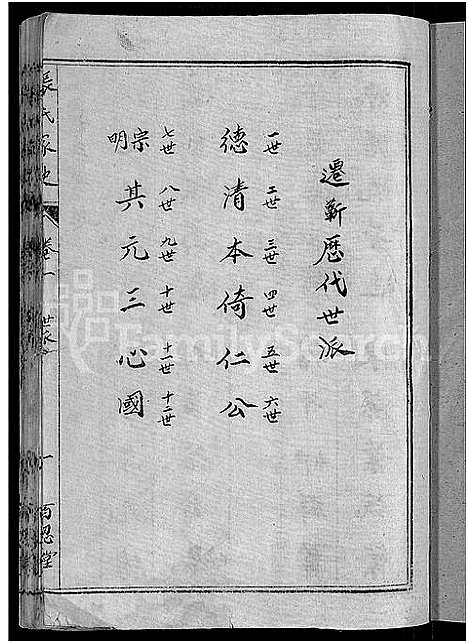 遷蘄歷代世派
一世 二世 三世 四世 五世 六世
德清本倚仁公
七世 八世 九世 十世 十一世 十二世
宗明其元三心國
張氏家史
卷一
世派
一
百忍堂
FamilySearch